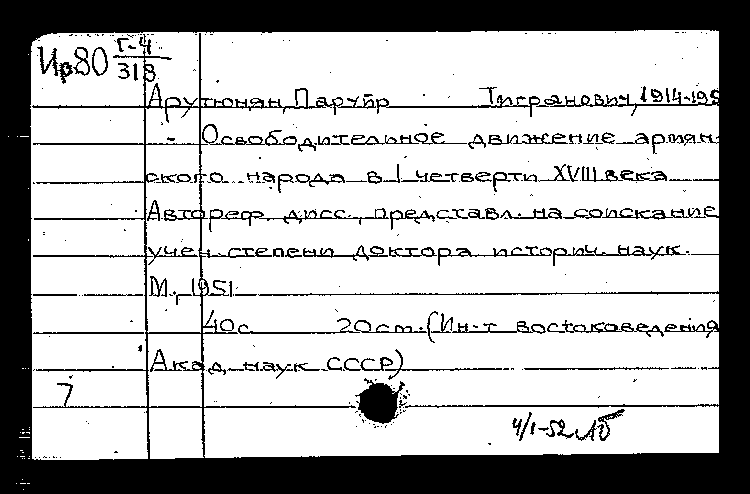 Ир80 Г-4/318
Арутюнян, Паруйр Тигранович, 1914-195
- Освободительное движение армян-
ского народа в I четверти XVIII века
Автореф. дисс., представл. на соискание
учен. степени доктора историч. наук.
М., 1951
40с. 20см. (Ин-т востоковедения
Акад. наук СССР)
7
4/I-52